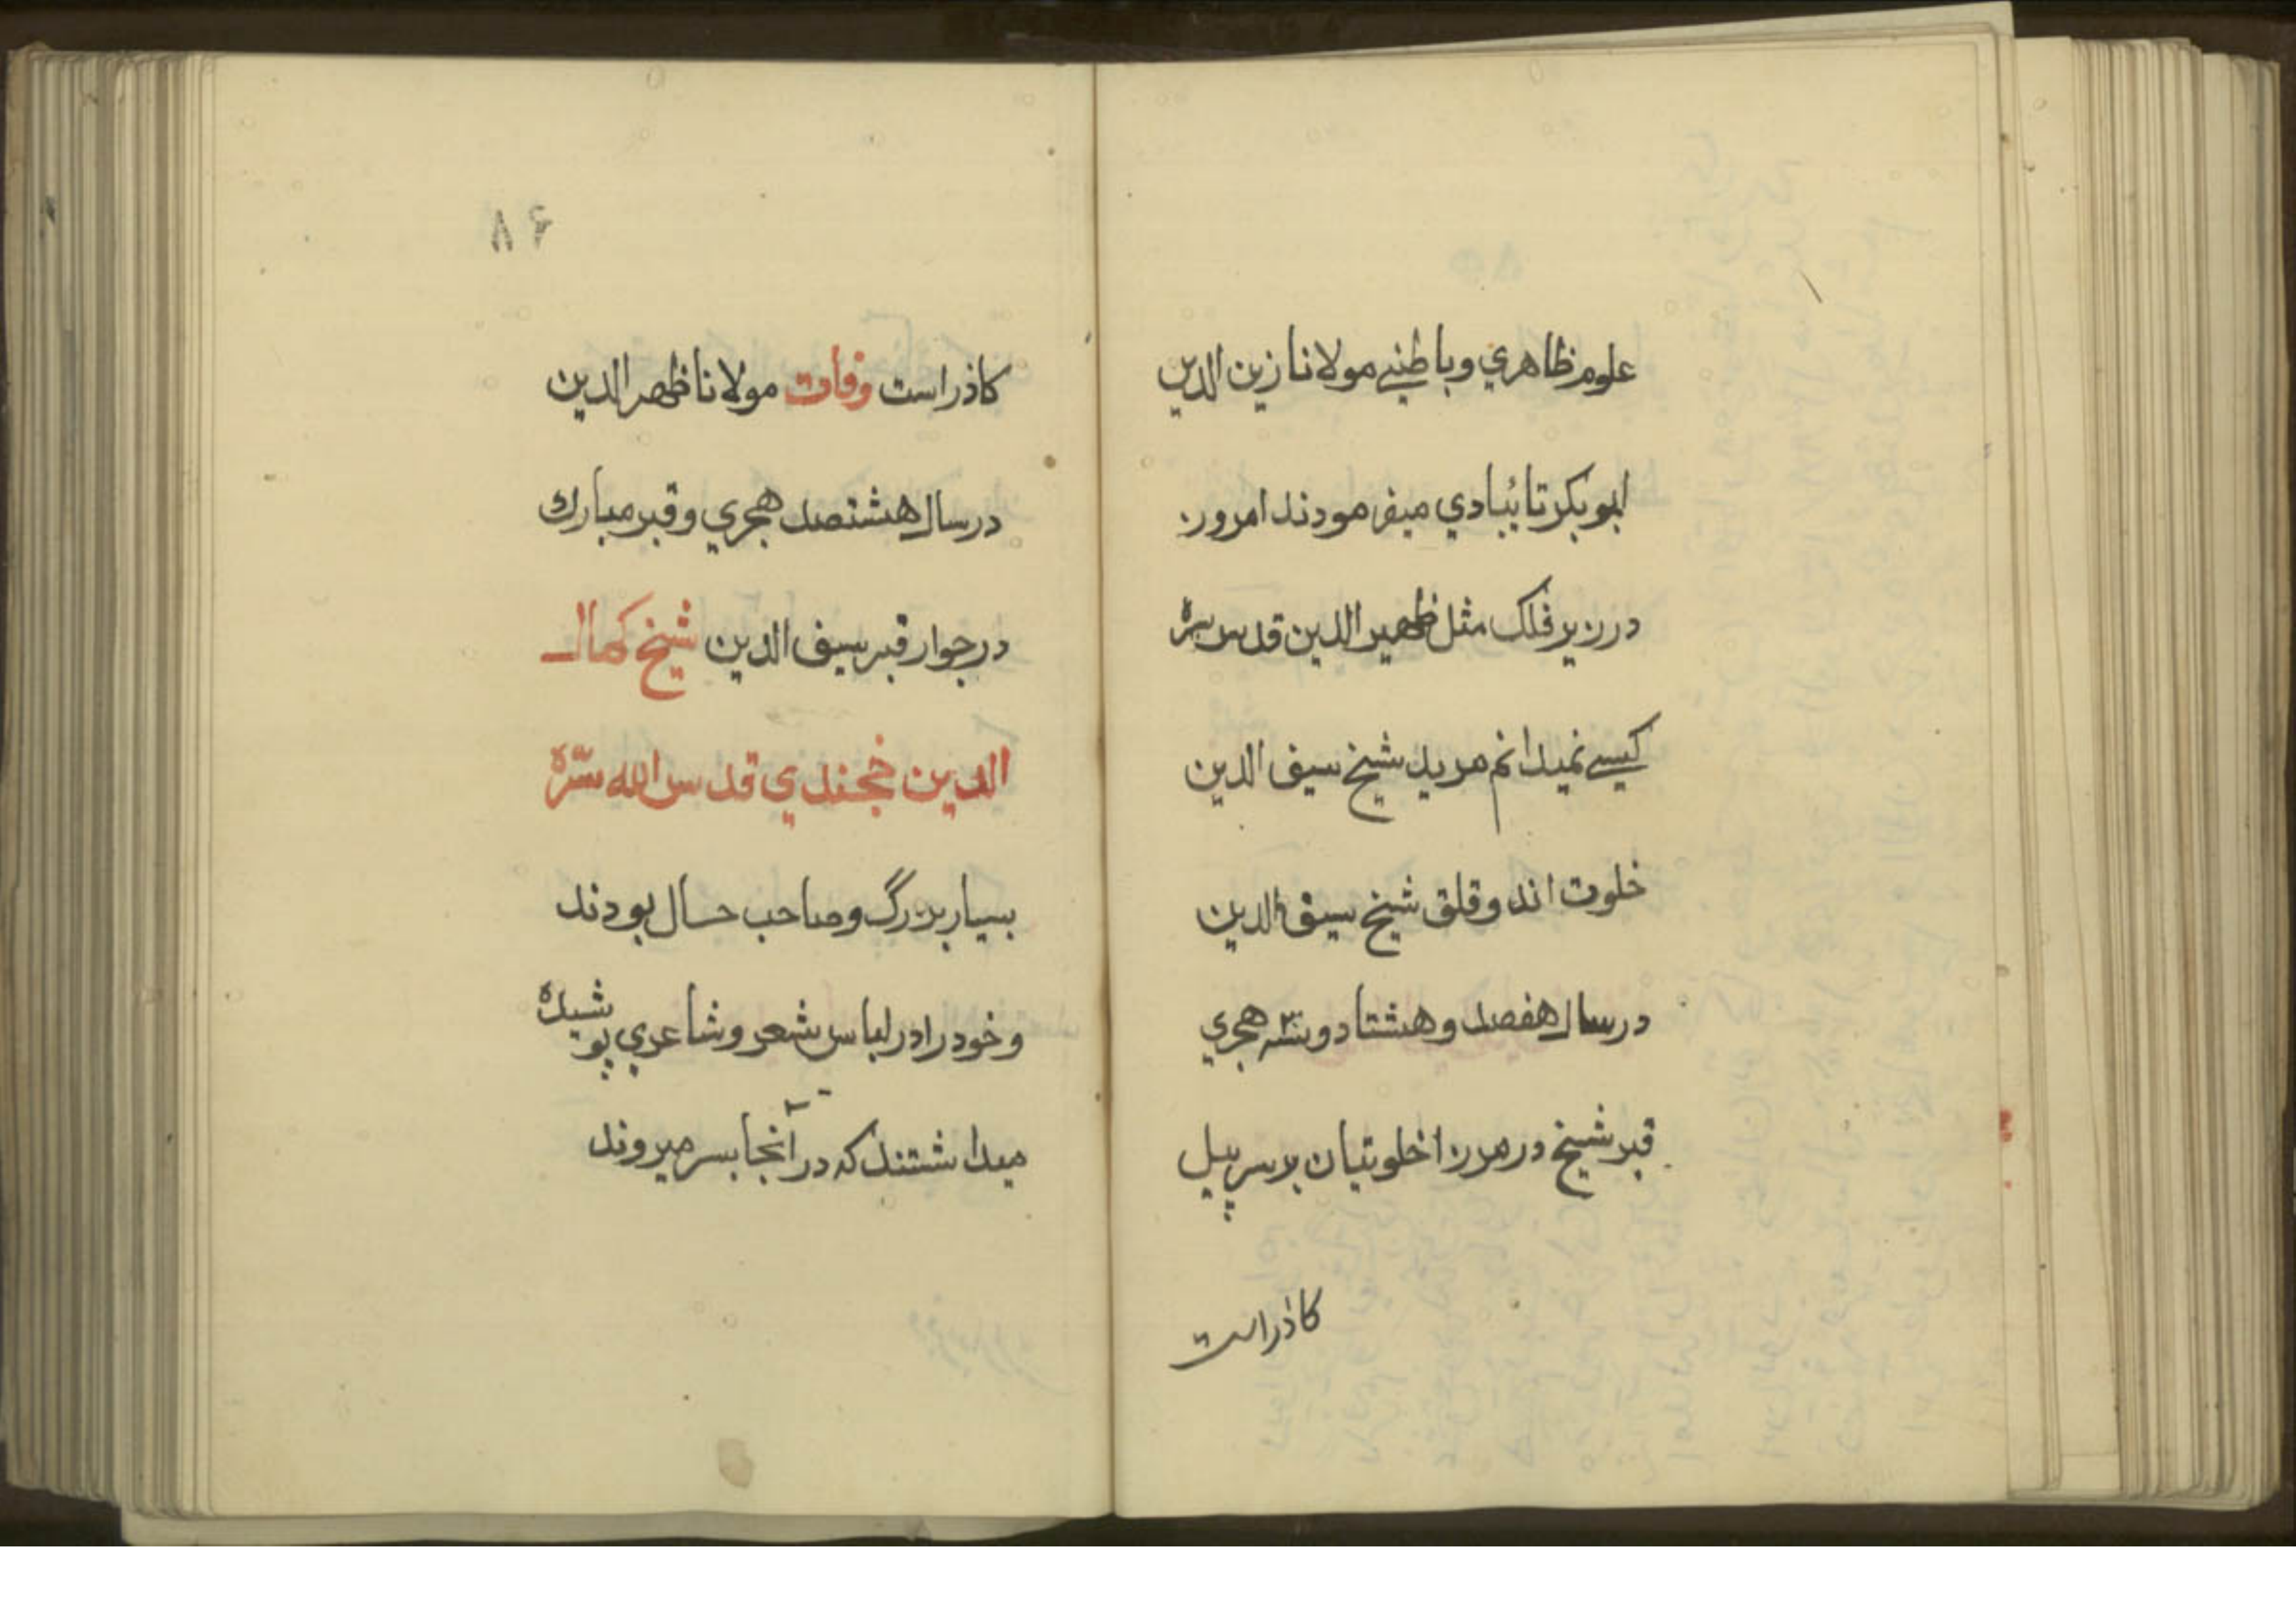 علوم ظاهري وباطنے مولانا زين الدين
ابوبكر تائبادي ميفرمودند امروز
در زير فلک مثل ظهير الدين قدس سره
كسے نميدانم مريد شيخ سيف الدين
خلوت اند و قلق شيخ سيف الدين
در سال هفصد وهشتاد وسه هجري
قبر شيخ در مزر اخلوتيان بر سر پيل
كاذراست
۸۶
كاذراست وفات مولانا ظهر الدين
در سال هشتصد هجري و قبر مبارك
در جوار قبر سيف الدين شيخ كمال
الدين خجندي قدس الله سرّه
بسيار بزرگ و صاحب حال بودند
وخود را در لباس شعر و شاعري پوشيده
ميداشتند كه در آنجا بسر ميروند